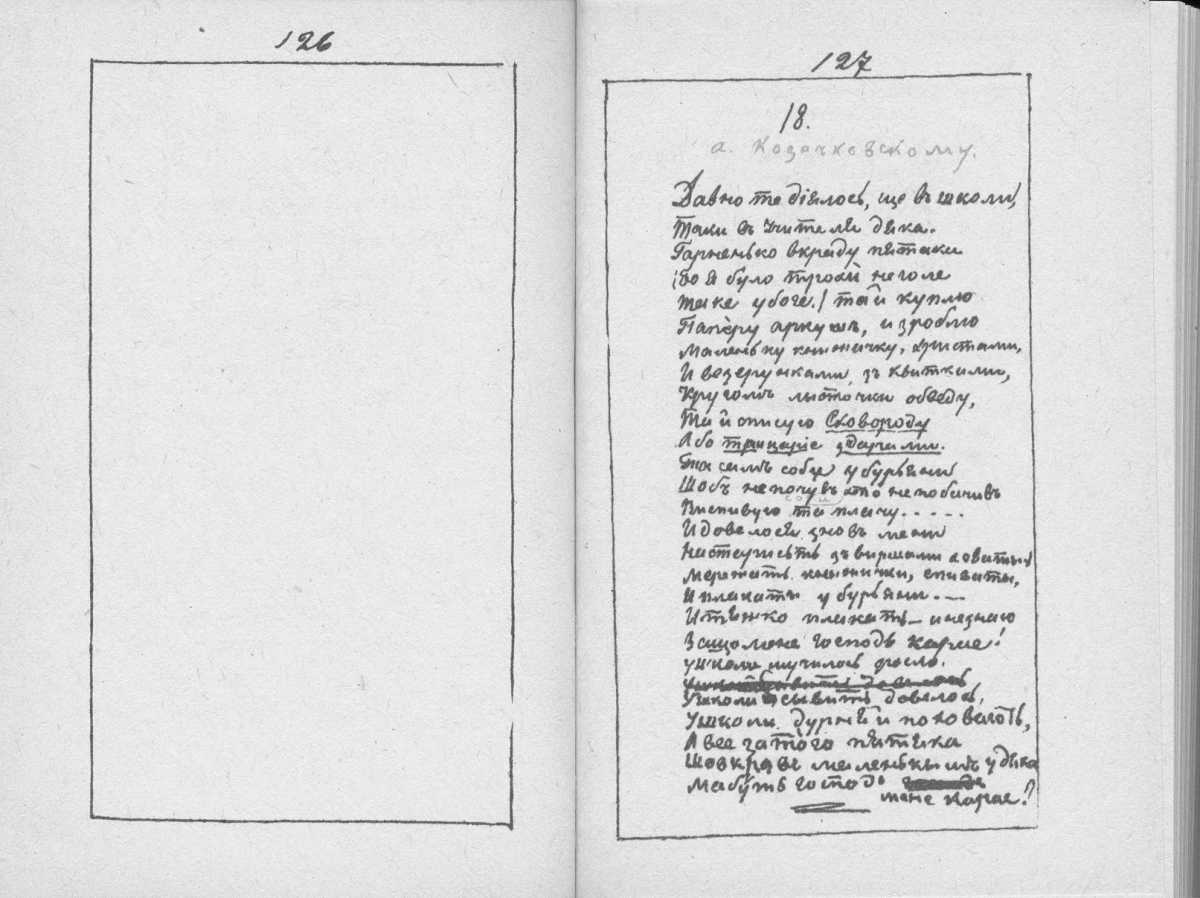 126
127
18.
А. Козачковскому.
Давно те діялось, ще въ школи,
Таки въ учителя дяка.
Гарненько вкраду пятака
(Бо я було трохи не голе
таке убоге.) та й куплю
Паперу аркушъ, и зроблю
Маленьку книжечку, хрестами,
И везерунками, зъ квитками,
Кругомъ листочки обведу,
Та й списую Сковороду
Або три царіе здарами.
Та самъ соби у бурьяни
Щобъ не почувъ хто не побачивъ
Виспивую та плачу.....
И довелося зновъ мени
на старисть зъ виршами ховатыся
мережать книжички, спивати,
И плакати у бурьяни.—
И тяжко плакать — и незнаю
За що мене господь карае!
У школи мучилось росло.
У школи сывить довелось,
У школи дурний и поховають,
А все за того пятака
Що вкравъ маленькимъ у дяка
Мабуть господь
мене карае!